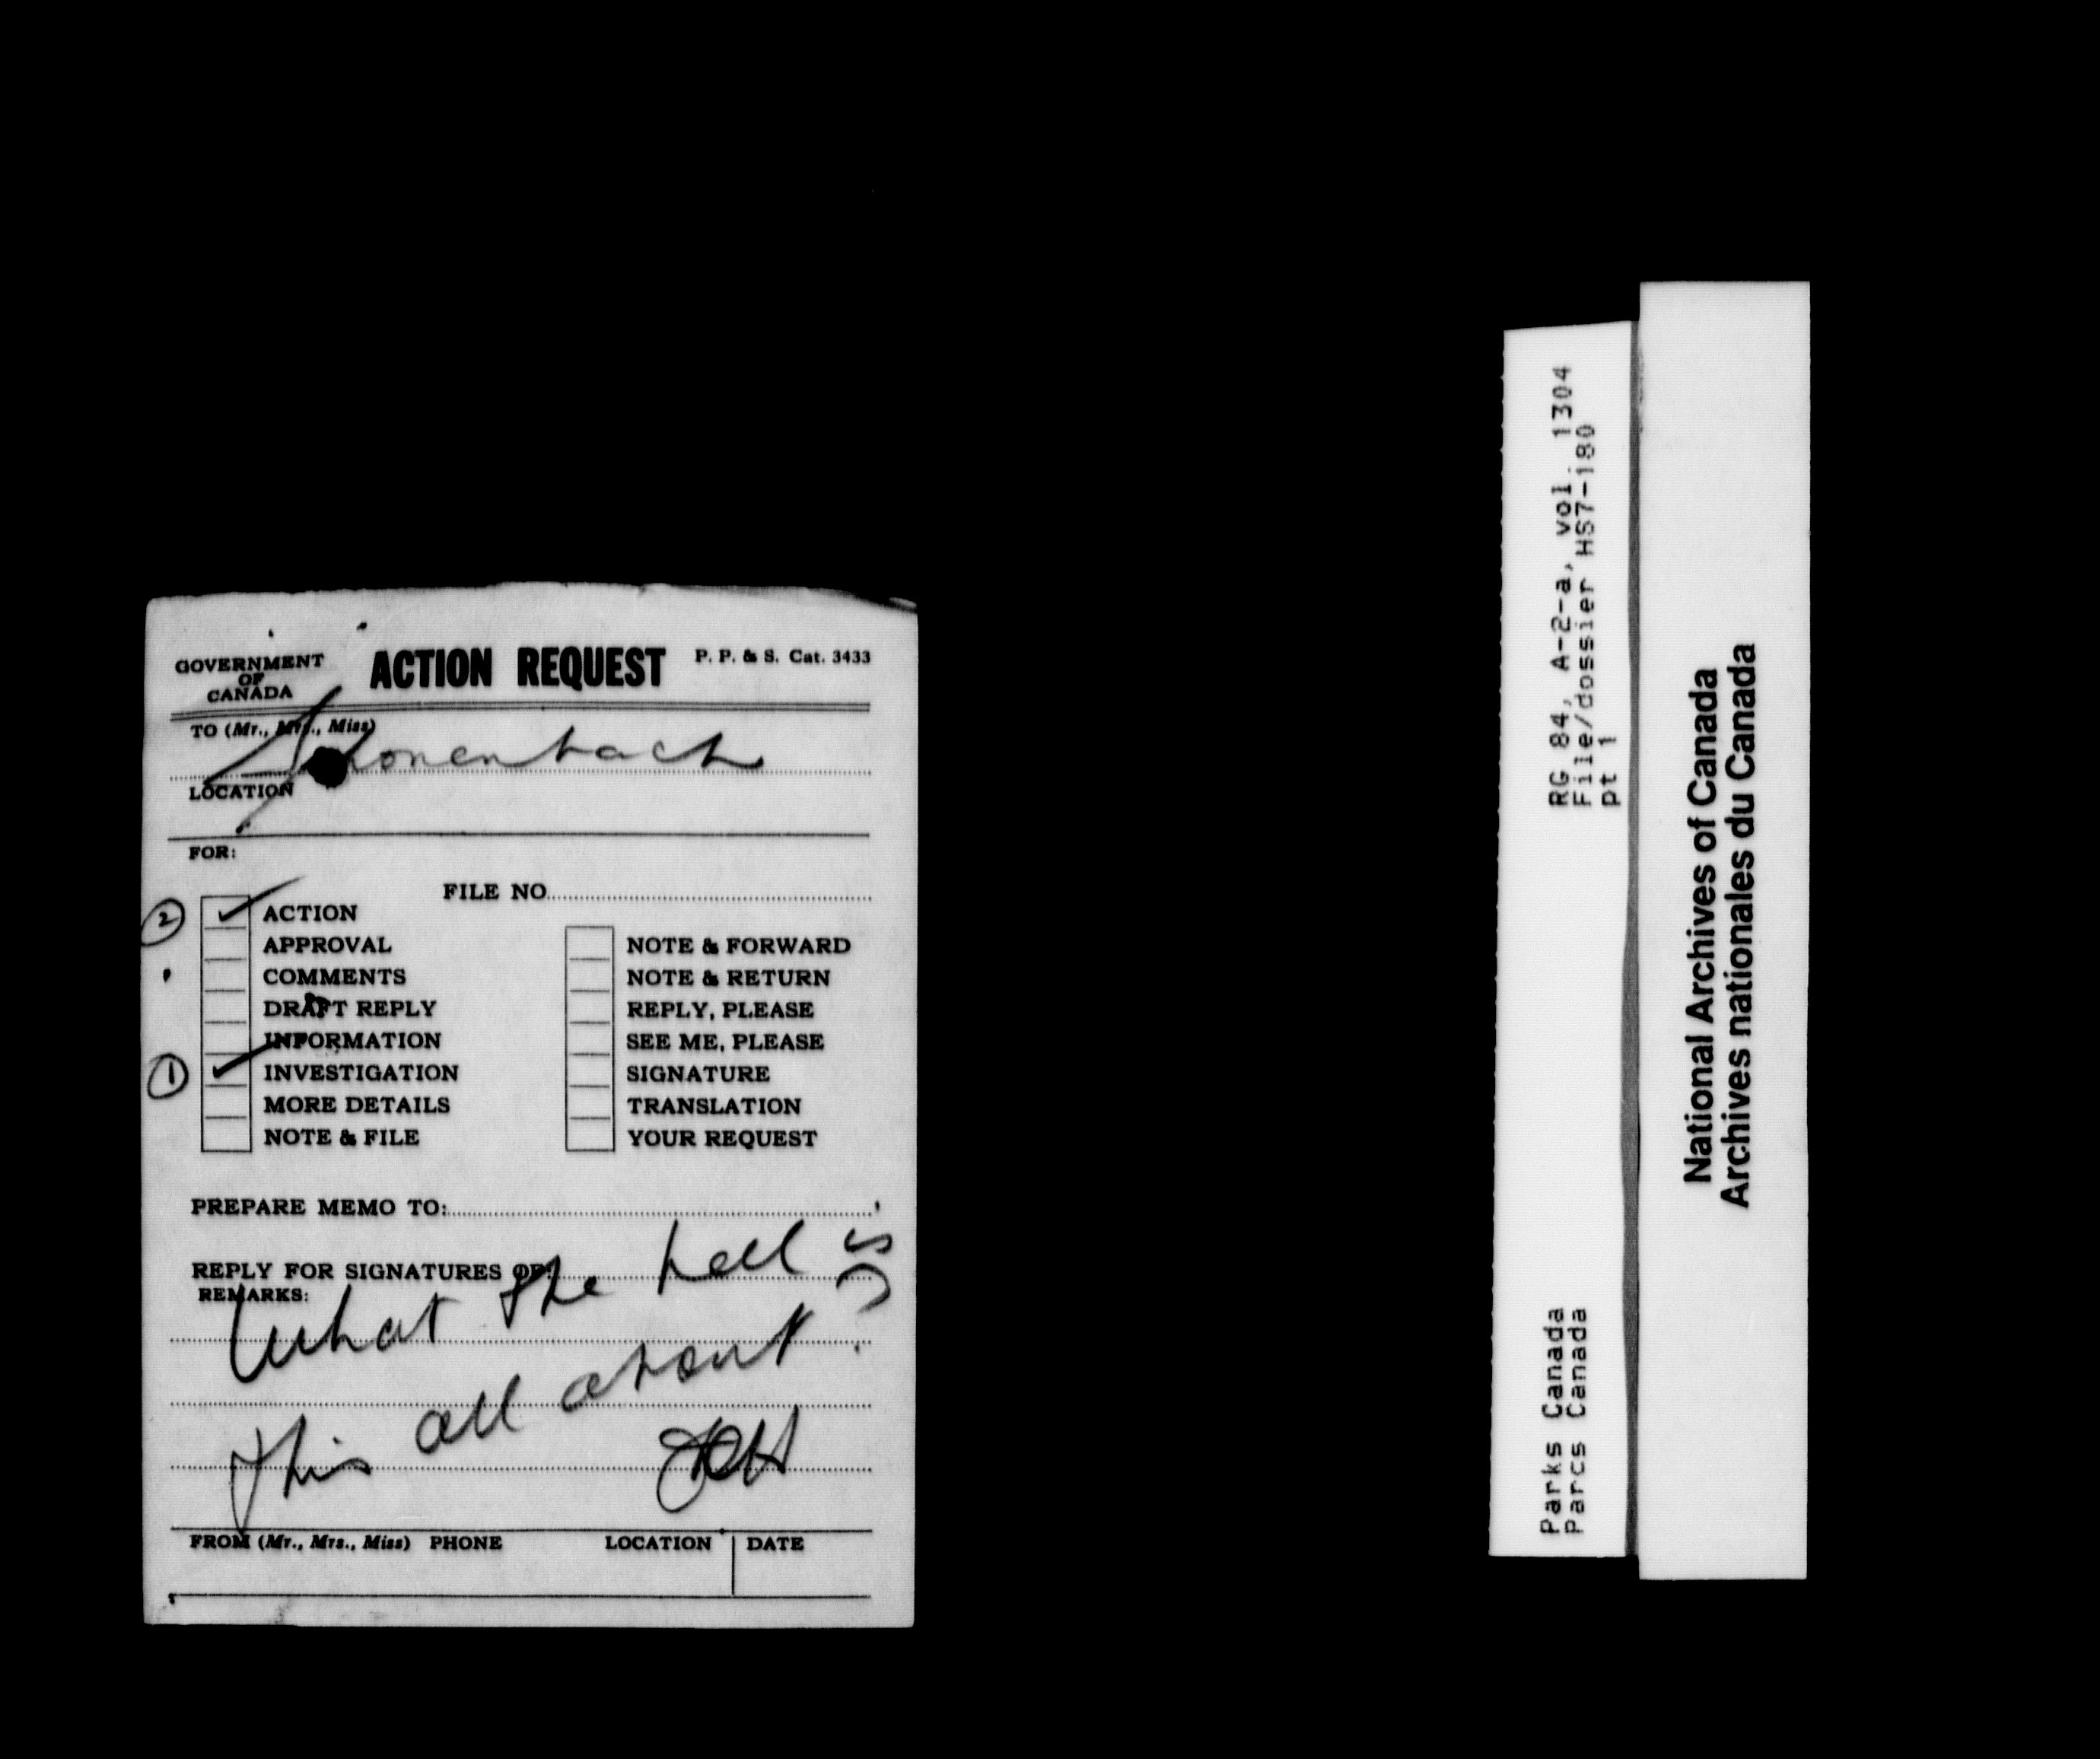 GOVERNMENT
OF
CANADA
ACTION REQUEST
P. P. & S. Cat. 3433
TO (Mr., Mrs., Miss)
LOCATION
FOR:
FILE NO
② ✓ ACTION
APPROVAL
COMMENTS
DRAFT REPLY
INFORMATION
① ✓ INVESTIGATION
MORE DETAILS
NOTE & FILE
NOTE & FORWARD
NOTE & RETURN
REPLY, PLEASE
SEE ME, PLEASE
SIGNATURE
TRANSLATION
YOUR REQUEST
PREPARE MEMO TO:
REPLY FOR SIGNATURES OF:
REMARKS:
What the hell is
this all about?
FROM (Mr., Mrs., Miss) PHONE LOCATION DATE
RG 84, A-2-a, vol. 1304
File/dossier HS7-180
pt 1
Parks Canada
Parcs Canada
National Archives of Canada
Archives nationales du Canada